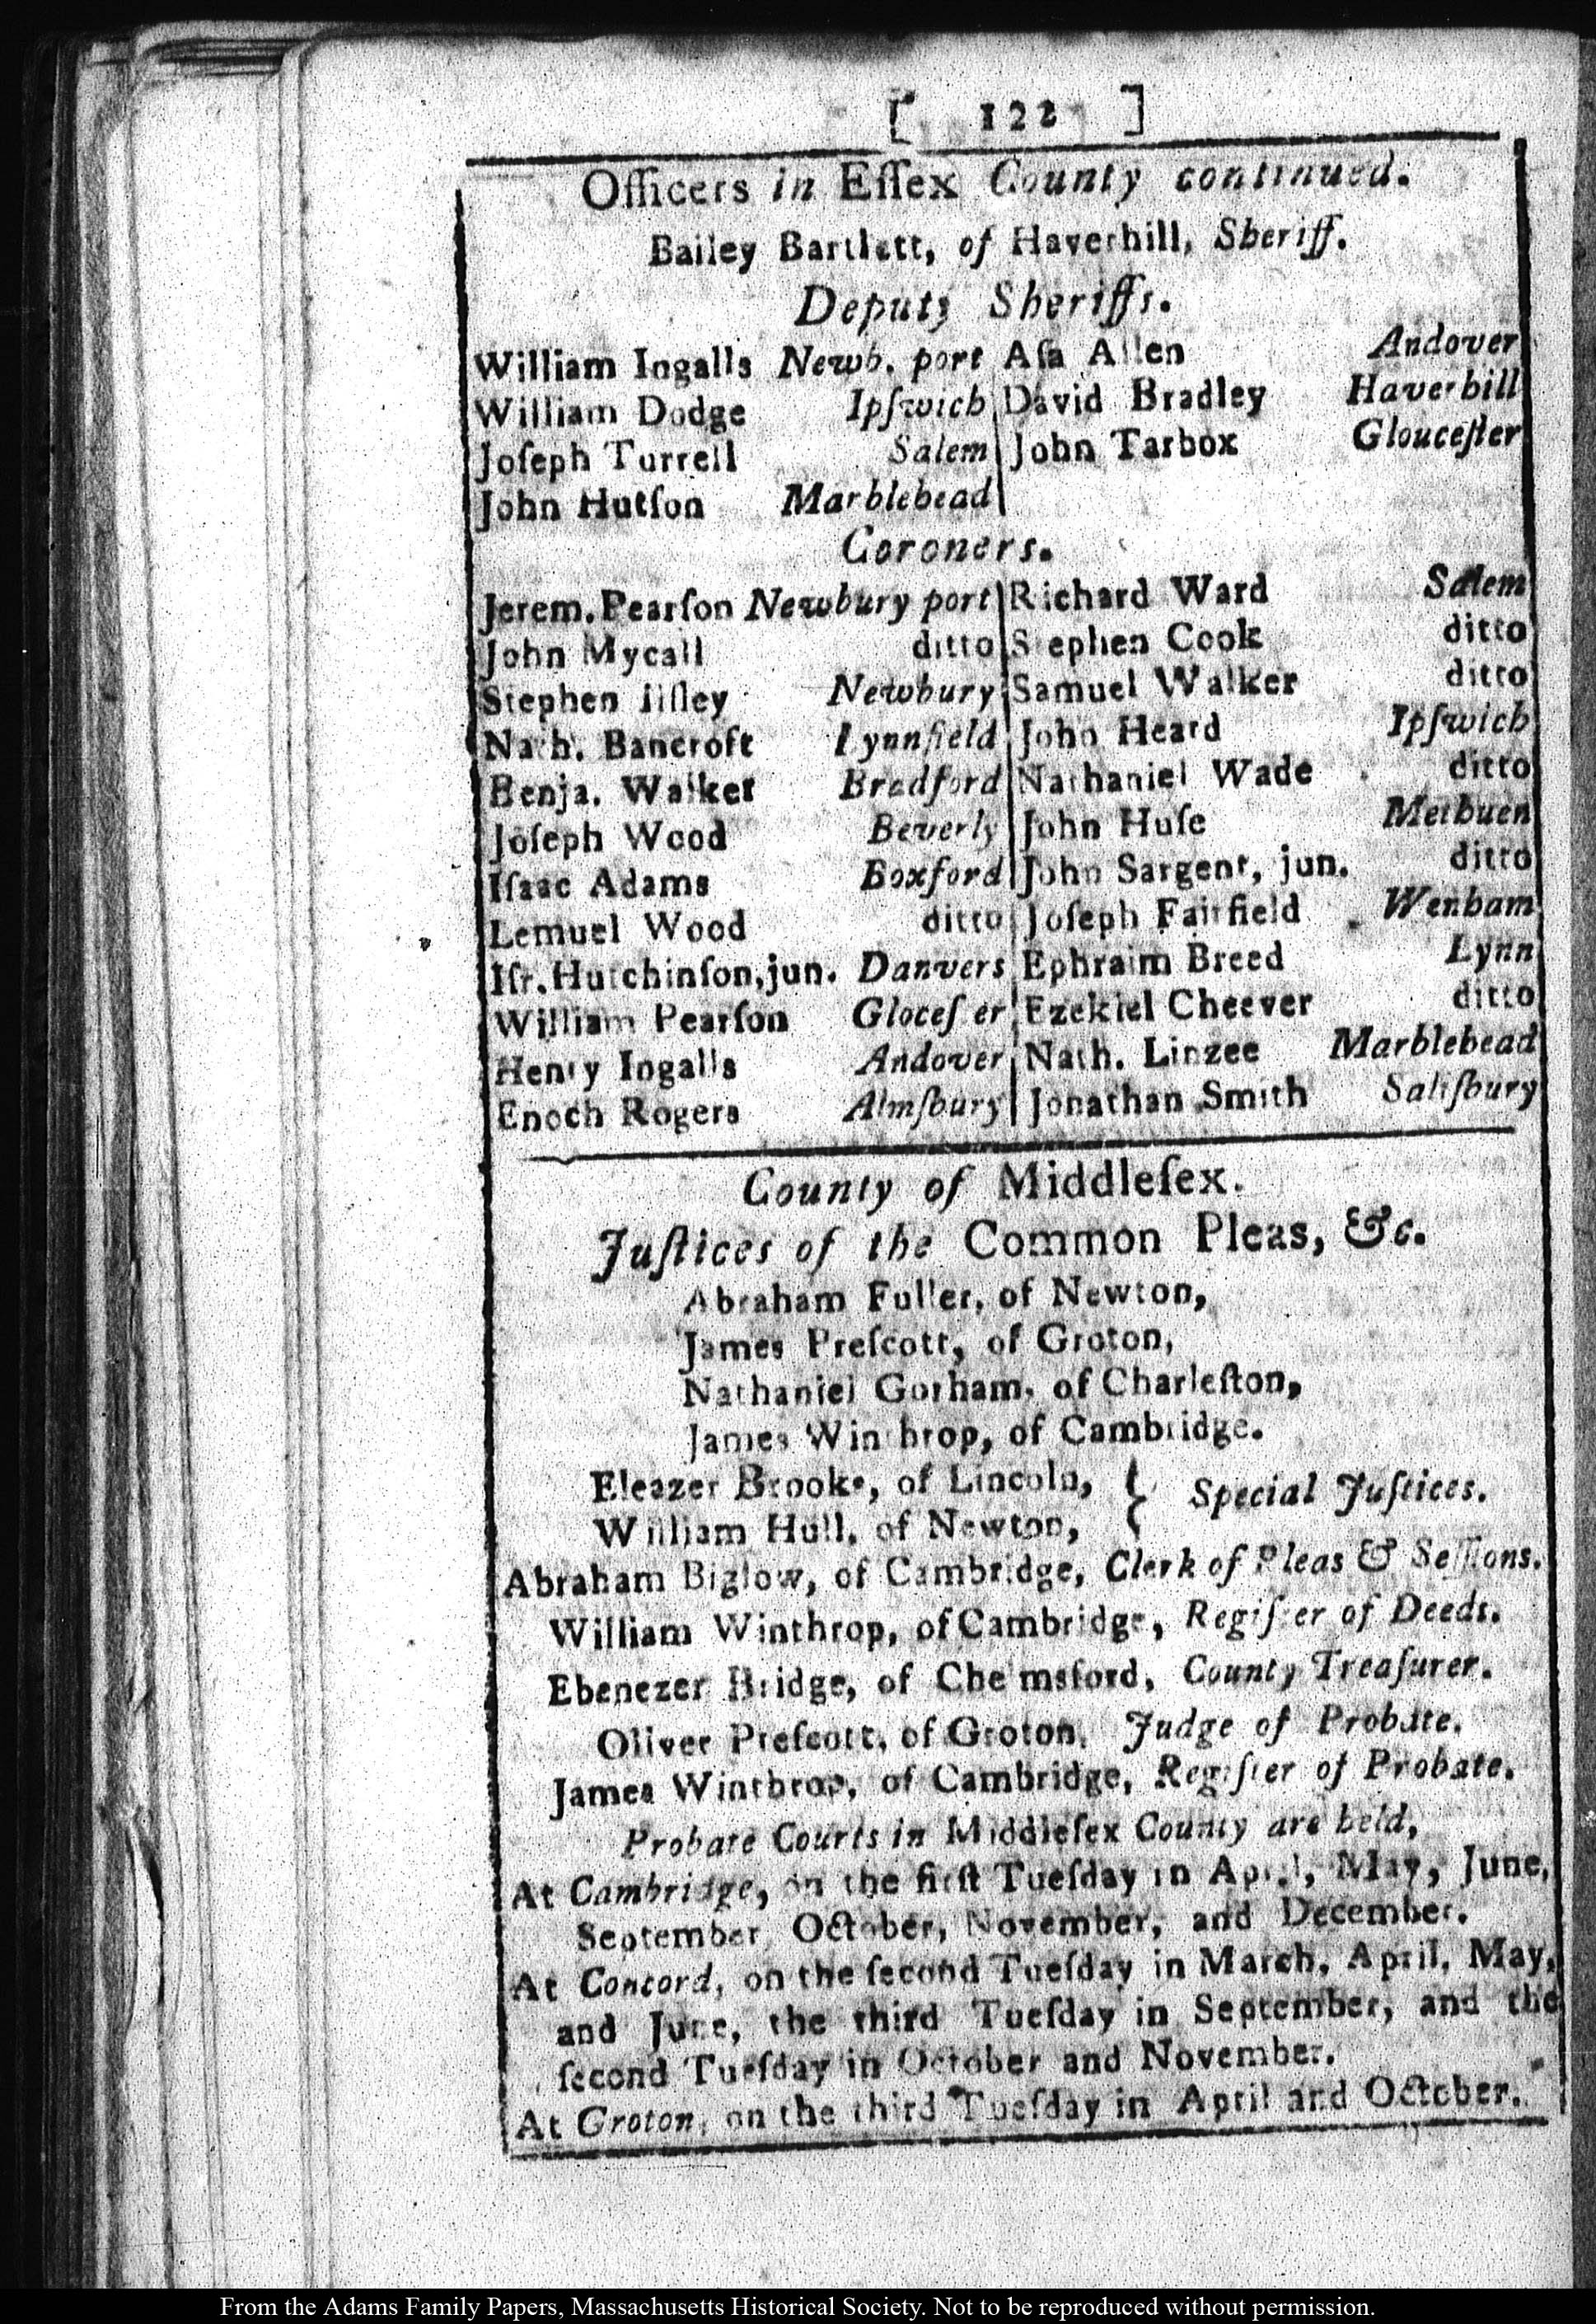 [ 122 ]
Officers in Eſſex County continued.
Bailey Bartlett, of Haverhill, Sheriff.
Deputy Sheriffs.
William Ingalls Newb. port Aſa Allen Andover
William Dodge Ipſwich David Bradley Haverhill
Joſeph Turrell Salem John Tarbox Glouceſter
John Hutſon Marblehead
Coroners.
Jerem. Pearſon Newbury port Richard Ward Salem
John Mycall ditto Stephen Cook ditto
Stephen Ilſley Newbury Samuel Walker ditto
Nath. Bancroft Lynnfield John Heard Ipſwich
Benja. Walker Bradford Nathaniel Wade ditto
Joſeph Wood Beverly John Huſe Methuen
Iſaac Adams Boxford John Sargent, jun. ditto
Lemuel Wood ditto Joſeph Fairfield Wenham
Iſr. Hutchinſon, jun. Danvers Ephraim Breed Lynn
William Pearſon Gloceſter Ezekiel Cheever ditto
Henry Ingalls Andover Nath. Linzee Marblehead
Enoch Rogers Almſbury Jonathan Smith Saliſbury
County of Middleſex.
Juſtices of the Common Pleas, &c.
Abraham Fuller, of Newton,
James Preſcott, of Groton,
Nathaniel Gorham, of Charleſton,
James Winthrop, of Cambridge.
Eleazer Brooks, of Lincoln, } Special Juſtices.
William Hull, of Newton,
Abraham Biglow, of Cambridge, Clerk of Pleas & Seſſions.
William Winthrop, of Cambridge, Regiſter of Deeds.
Ebenezer Bridge, of Chelmsford, County Treaſurer.
Oliver Preſcott, of Groton, Judge of Probate.
James Winthrop, of Cambridge, Regiſter of Probate.
Probate Courts in Middleſex County are held,
At Cambridge, on the firſt Tueſday in April, May, June,
September, October, November, and December.
At Concord, on the ſecond Tueſday in March, April, May,
and June, the third Tueſday in September, and the
ſecond Tueſday in October and November.
At Groton, on the third Tueſday in April and October.
From the Adams Family Papers, Massachusetts Historical Society. Not to be reproduced without permission.